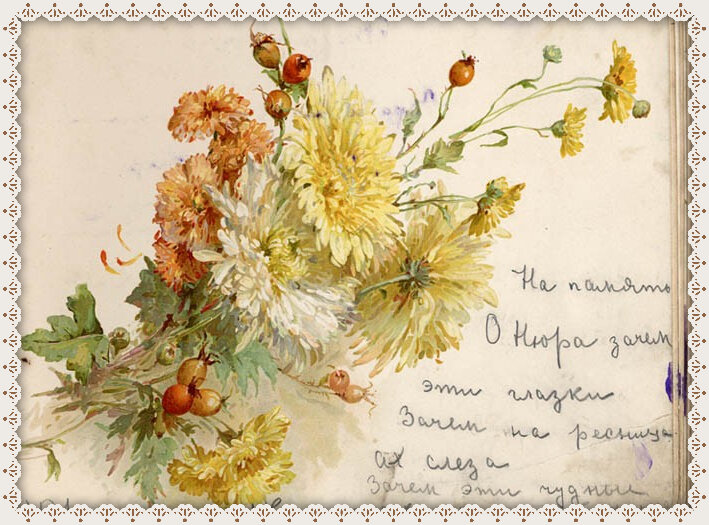 На память
О Нюра зачем
эти глазки
Зачем на ресница
ах слеза
Зачем эти чудные